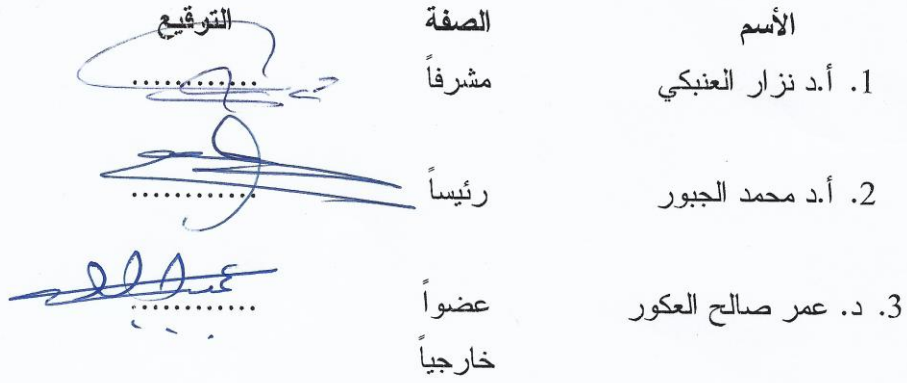 الأسم الصفة التوقيع
1. أ.د نزار العنبكي مشرفاً .............
2. أ.د محمد الجبور رئيساً .............
3. د. عمر صالح العكور عضواً .............
خارجياً